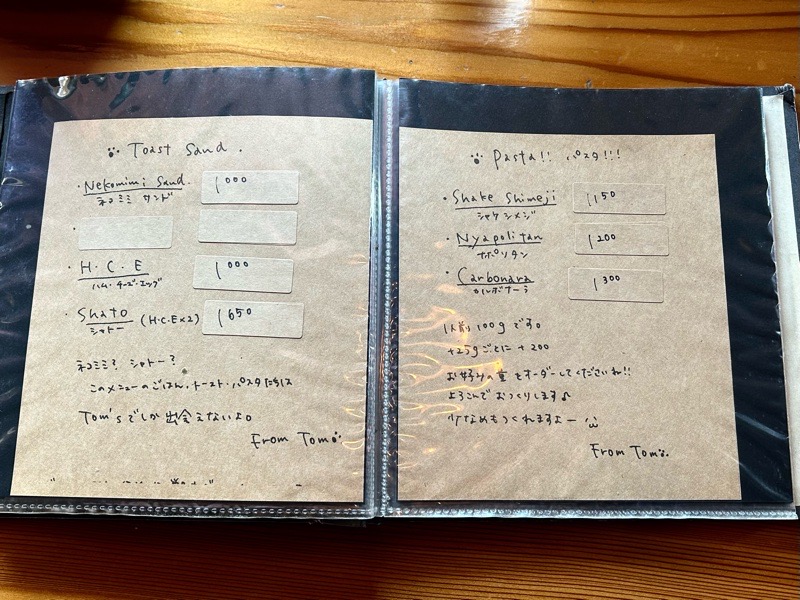 Toast Sand.
・Nekomimi Sand. 1000
ネコミミ サンド
・
・H・C・E 1000
ハム・チーズ・エッグ
・Shato (H.C.E×2) 1650
シャトー
ネコミミ? シャトー?
このメニューのごはん、トースト・パスタたちは
Tom'sでしか出会えないよ。
From Tom
Pasta!! パスタ!!!
・Shake Shimeji 1150
シャケシメジ
・Nyapolitan 1200
ナポリタン
・Carbonara 1300
カルボナーラ
1人前100gです。
+25gごとに+200
お好みの量をオーダーしてくださいね!!
よろこんでおつくりします♪
少なめもつくれますよー
From Tom